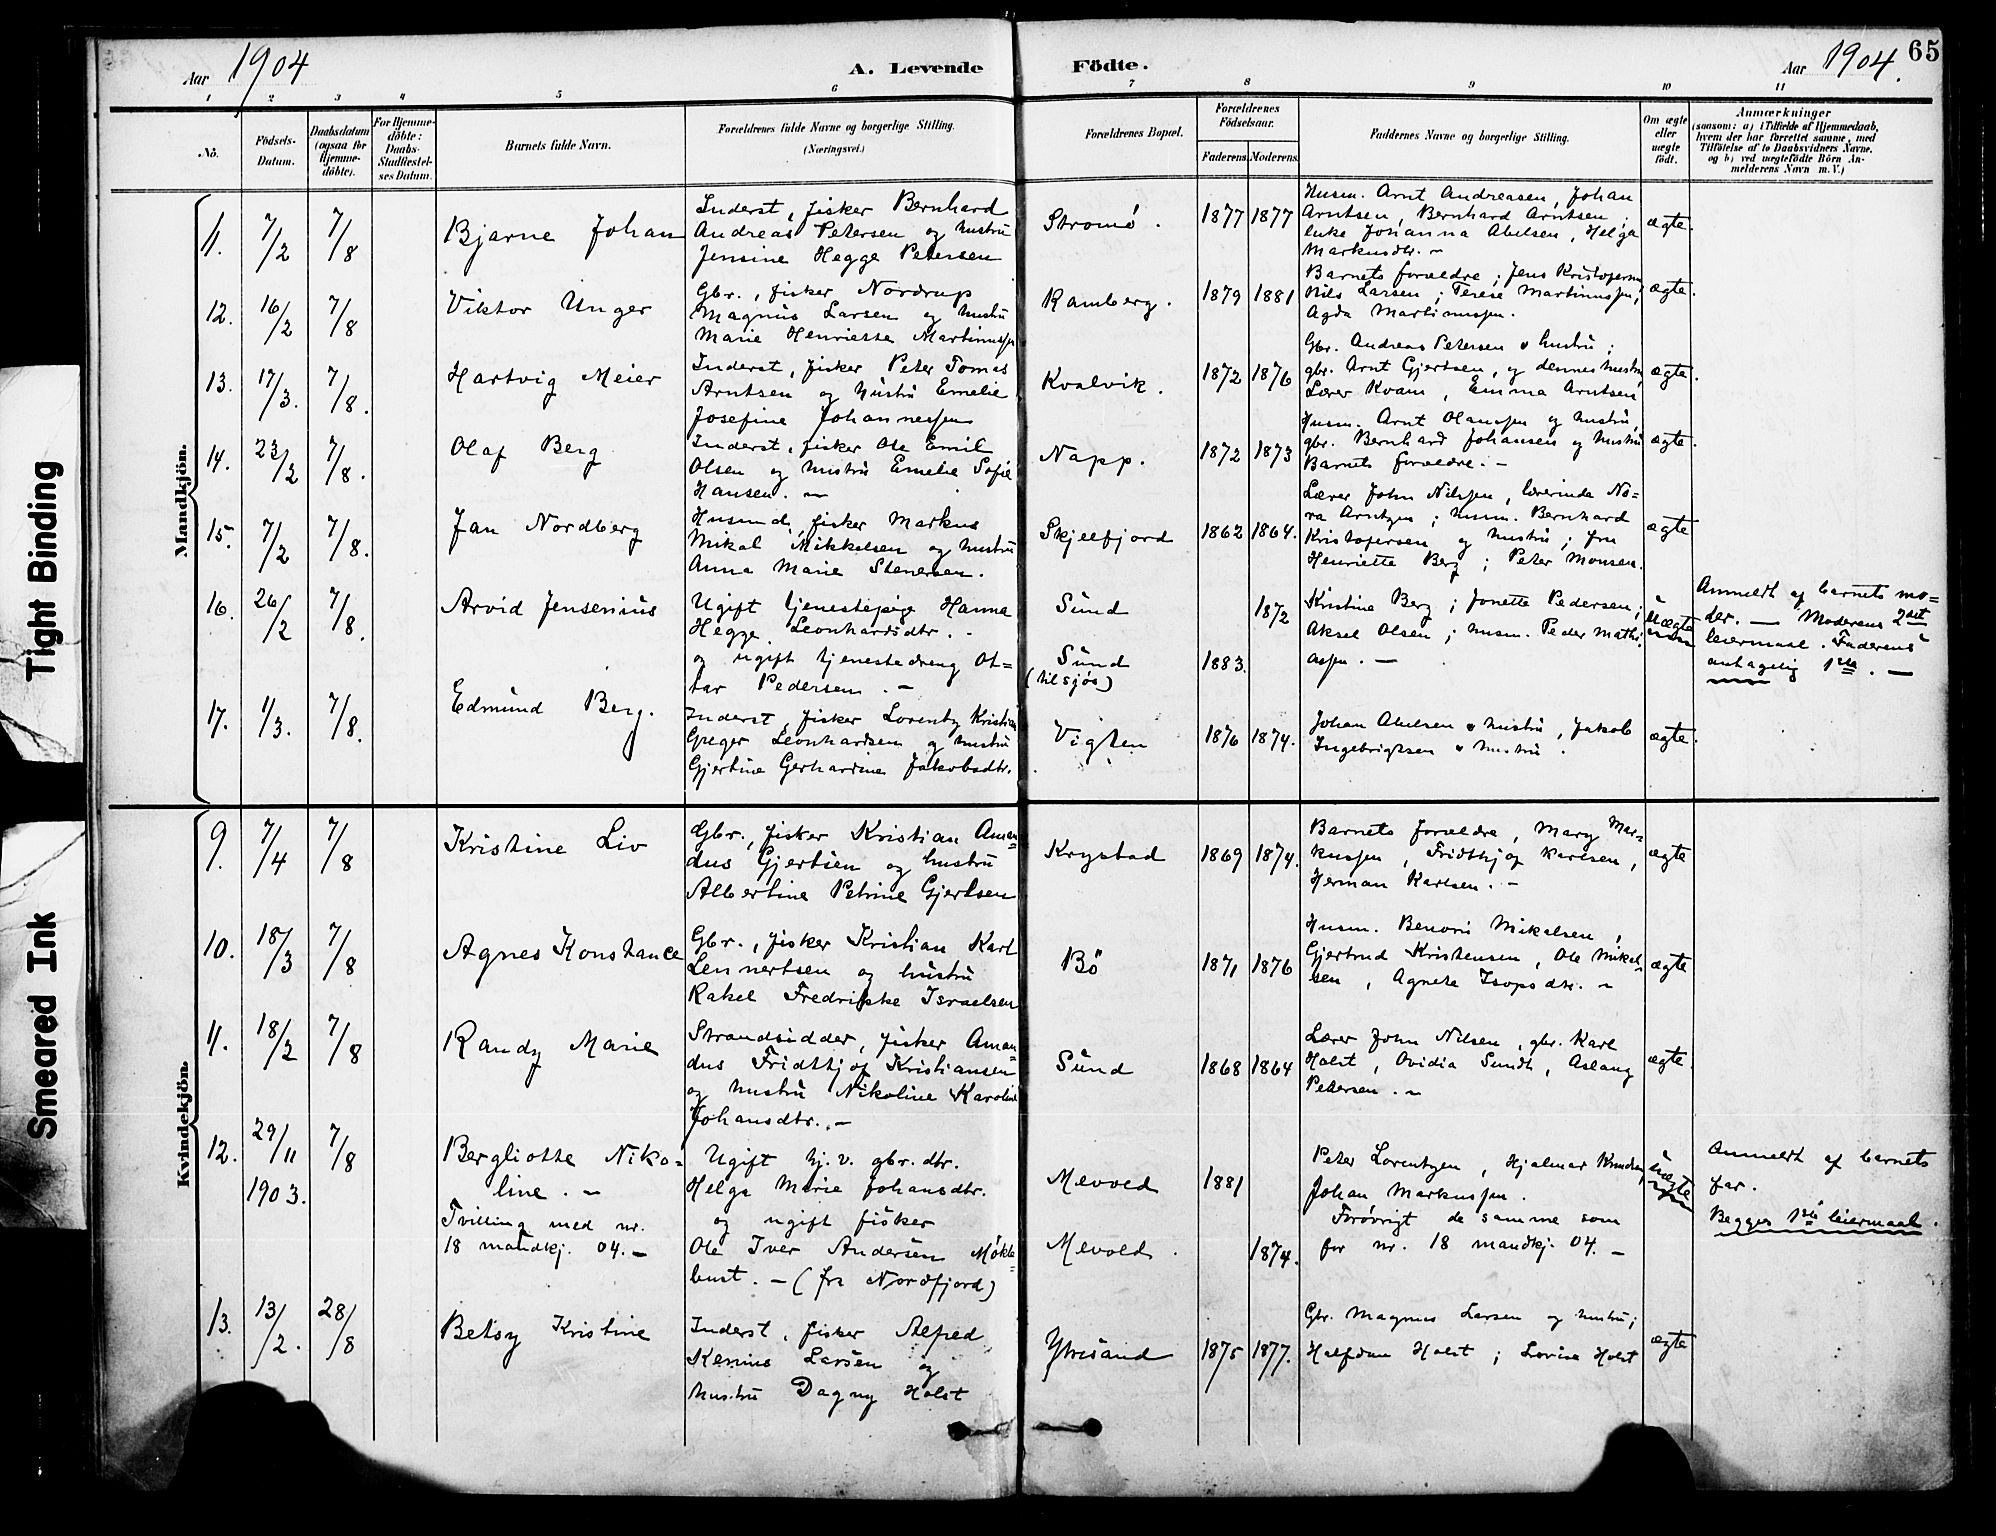 Aar 1904
A. Levende Födte.
Aar 1904.
65
1 2 3 4 5 6 7 8 9 10 11
No.
Födsels-
Datum.
Daabsdatum
(ogsaa for
Hjemme-
döbte).
For Hjemme-
döbte:
Daabs-
Stadfæstel-
ses Datum.
Barnets fulde Navn.
Forældrenes fulde Navne og borgerlige Stilling.
(Næringsvei.)
Forældrenes Bopæl.
Forældrenes
Födselsaar.
Faderens. Moderens.
Faddernes Navne og borgerlige Stilling.
Om ægte
eller
uægte
født.
Anmærkninger
(saasom: a) i Tilfælde af Hjemmedaab,
hvem der har forrettet samme, med
Tilföielse af to Daabsvidners Navne.
og b) ved uægtefödte Börn An-
melderens Navn m. V.)
Mandkjön.
11. 7/2 7/8
Bjarne Johan
Inderst, fisker Bernhard
Andreas Petersen og hustru
Jensine Hegge Petersen
Strømø.
1877 1877
Husm. Arnt Andreasen, Johan
Arntsen, Bernhard Arntsen;
enke Johanna Abelsen, Helga
Markusdtr. -
ægte.
12. 16/2 7/8
Viktor Unger
Gbr., fisker Nordrup
Magnus Larsen og hustru
Marie Henriette Martinussen
Ramberg.
1879 1881
Barnets forældre; Jens Kristofersen
Nils Larsen; Terese Martinussen;
Agda Martinussen.
ægte.
13. 17/3. 7/8.
Hartvig Meier
Inderst, fisker Peter Tomas
Arntsen og hustru Emelie
Josefine Johannessen
Kvalvik.
1872 1876
Gbr. Andreas Petersen & hustru;
gbr. Arnt Gjertsen, og dennes hustru
Lærer Kvam, Emma Arntsen
ægte.
14. 23/2 7/8.
Olaf Berg
Inderst, fisker Ole Emil
Olsen og hustru Emelie Sofie
Hansen. -
Napp.
1872 1873
Husm. Arnt Olaussen og hustru,
gbr. Bernhard Johansen og hustru
Barnets forældre. -
ægte.
15. 7/2 7/8.
Jan Nordberg
Husmd, fisker Markus
Mikal Mikkelsen og hustru
Anna Marie Stenersen.
Skjelfjord
1862 1864.
Lærer John Nilssen, lærerinde No-
ra Arntzen; husm. Bernhard
Kristofersen og hustru; fru
Henriette Berg; Peter Monsen.
ægte
16. 26/2 7/8.
Arvid Jensenius
Ugift tjenestepige Hanna
Hegge Leonhardsdtr. -
og ugift tjenestedreng Ot-
tar Pedersen. -
Sund
Sund
(tilsjøs)
1872
1883.
Kristine Berg; Jonette Pedersen;
Aksel Olsen; husm. Peder Mathi-
assen. -
uægte
Anmeldt af barnets mo-
der. - Moderens 2det
leiermaal. Faderens
antagelig 1ste. -
17. 1/3. 7/8.
Edmund Berg.
Inderst, fisker Lorentz Kristian
Greger Leonhardsen og hustru
Gjertine Gerhardine Jakobsdtr.
Vigten
1876 1874.
Johan Abelsen & hustru, Jakob
Ingebrigtsen & hustru.
ægte.
Kvindekjön.
9. 7/4 7/8
Kristine Liv
Gbr., fisker Kristian Aman-
dus Gjertsen og hustru
Albertine Petrine Gjertsen
Krystad
1869 1874.
Barnets forældre, Mary Mar-
kussen, Fridthjof Karlsen,
Herman Karlsen. -
ægte
10. 18/3 7/8
Agnes Konstance
Gbr., fisker Kristian Karl
Lennertsen og hustru
Rakel Fredrikke Israelsen
Bö
1871 1876
Husm. Benoni Mikalsen,
Gjertrud Kristensen, Ole Mikal-
sen, Agneta Isopsdtr. -
ægte
11. 18/2 7/8
Randy Marie
Strandsidder, fisker Aman-
dus Fridthjof Kristiansen
og hustru Nikoline Karoline
Johansdtr. -
Sund
1868 1864
Lærer John Nilsen, gbr. Karl
Holst, Ovidia Sundt, Aslaug
Petersen. -
ægte.
12. 29/11 7/8
1903.
Bergliotte Niko-
line. -
Tvilling med nr.
18 mandkj. 04. -
Ugift hj. v. gbr. dtr.
Helga Marie Johansdtr.
og ugift fisker
Ole Iver Andersen Møkle-
bust. - (fra Nordfjord)
Mevold
Mevold.
1881
1874.
Peter Lorentzen, Hjalmar Knudsen,
Johan Markussen.
Forøvrigt de samme som
for nr. 18 mandkj. 04. -
uægte
Anmeldt af barnets
far.
Begges 1ste leiermaal.
13. 13/2. 28/8
Betsy Kristine
Inderst, fisker Alfred
Kenius Larsen og
hustru Dagny Holst
Ytresand
1875 1877.
Gbr. Magnus Larsen og hustru;
Halfdan Holst; Lovise Holst
ægte
Tight Binding
Smeared Ink